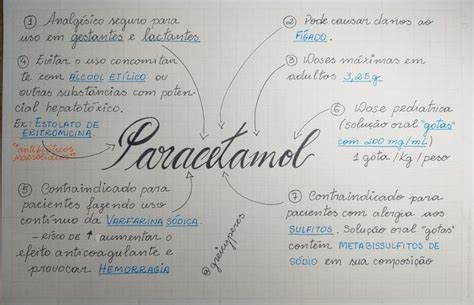 ① Analgésico seguro para
uso em gestantes e lactantes
② Pode causar danos ao
FÍGADO.
③ Doses máximas em
adultos 3,25g
④ Evitar o uso concomitan
te com ÁLCOOL ETÍLICO ou
outras substâncias com poten
cial hepatotóxico.
Ex: ESTOLATO DE
ERITROMICINA.
"antibióticos
macrolídeos"
Paracetamol
⑥ Dose pediátrica
(solução oral "gotas"
com 200 mg/mL)
1 gota / kg / peso
⑤ Contraindicado para
pacientes fazendo uso
contínuo da VARFARINA SÓDICA.
- RISCO DE ↑ aumentar o
efeito anticoagulante e
provocar HEMORRAGIA
@greicyperes
⑦ Contraindicado para
pacientes com alergia aos
SULFITOS. Solução oral "gotas"
contém METABISSULFITOS DE
SÓDIO em sua composição